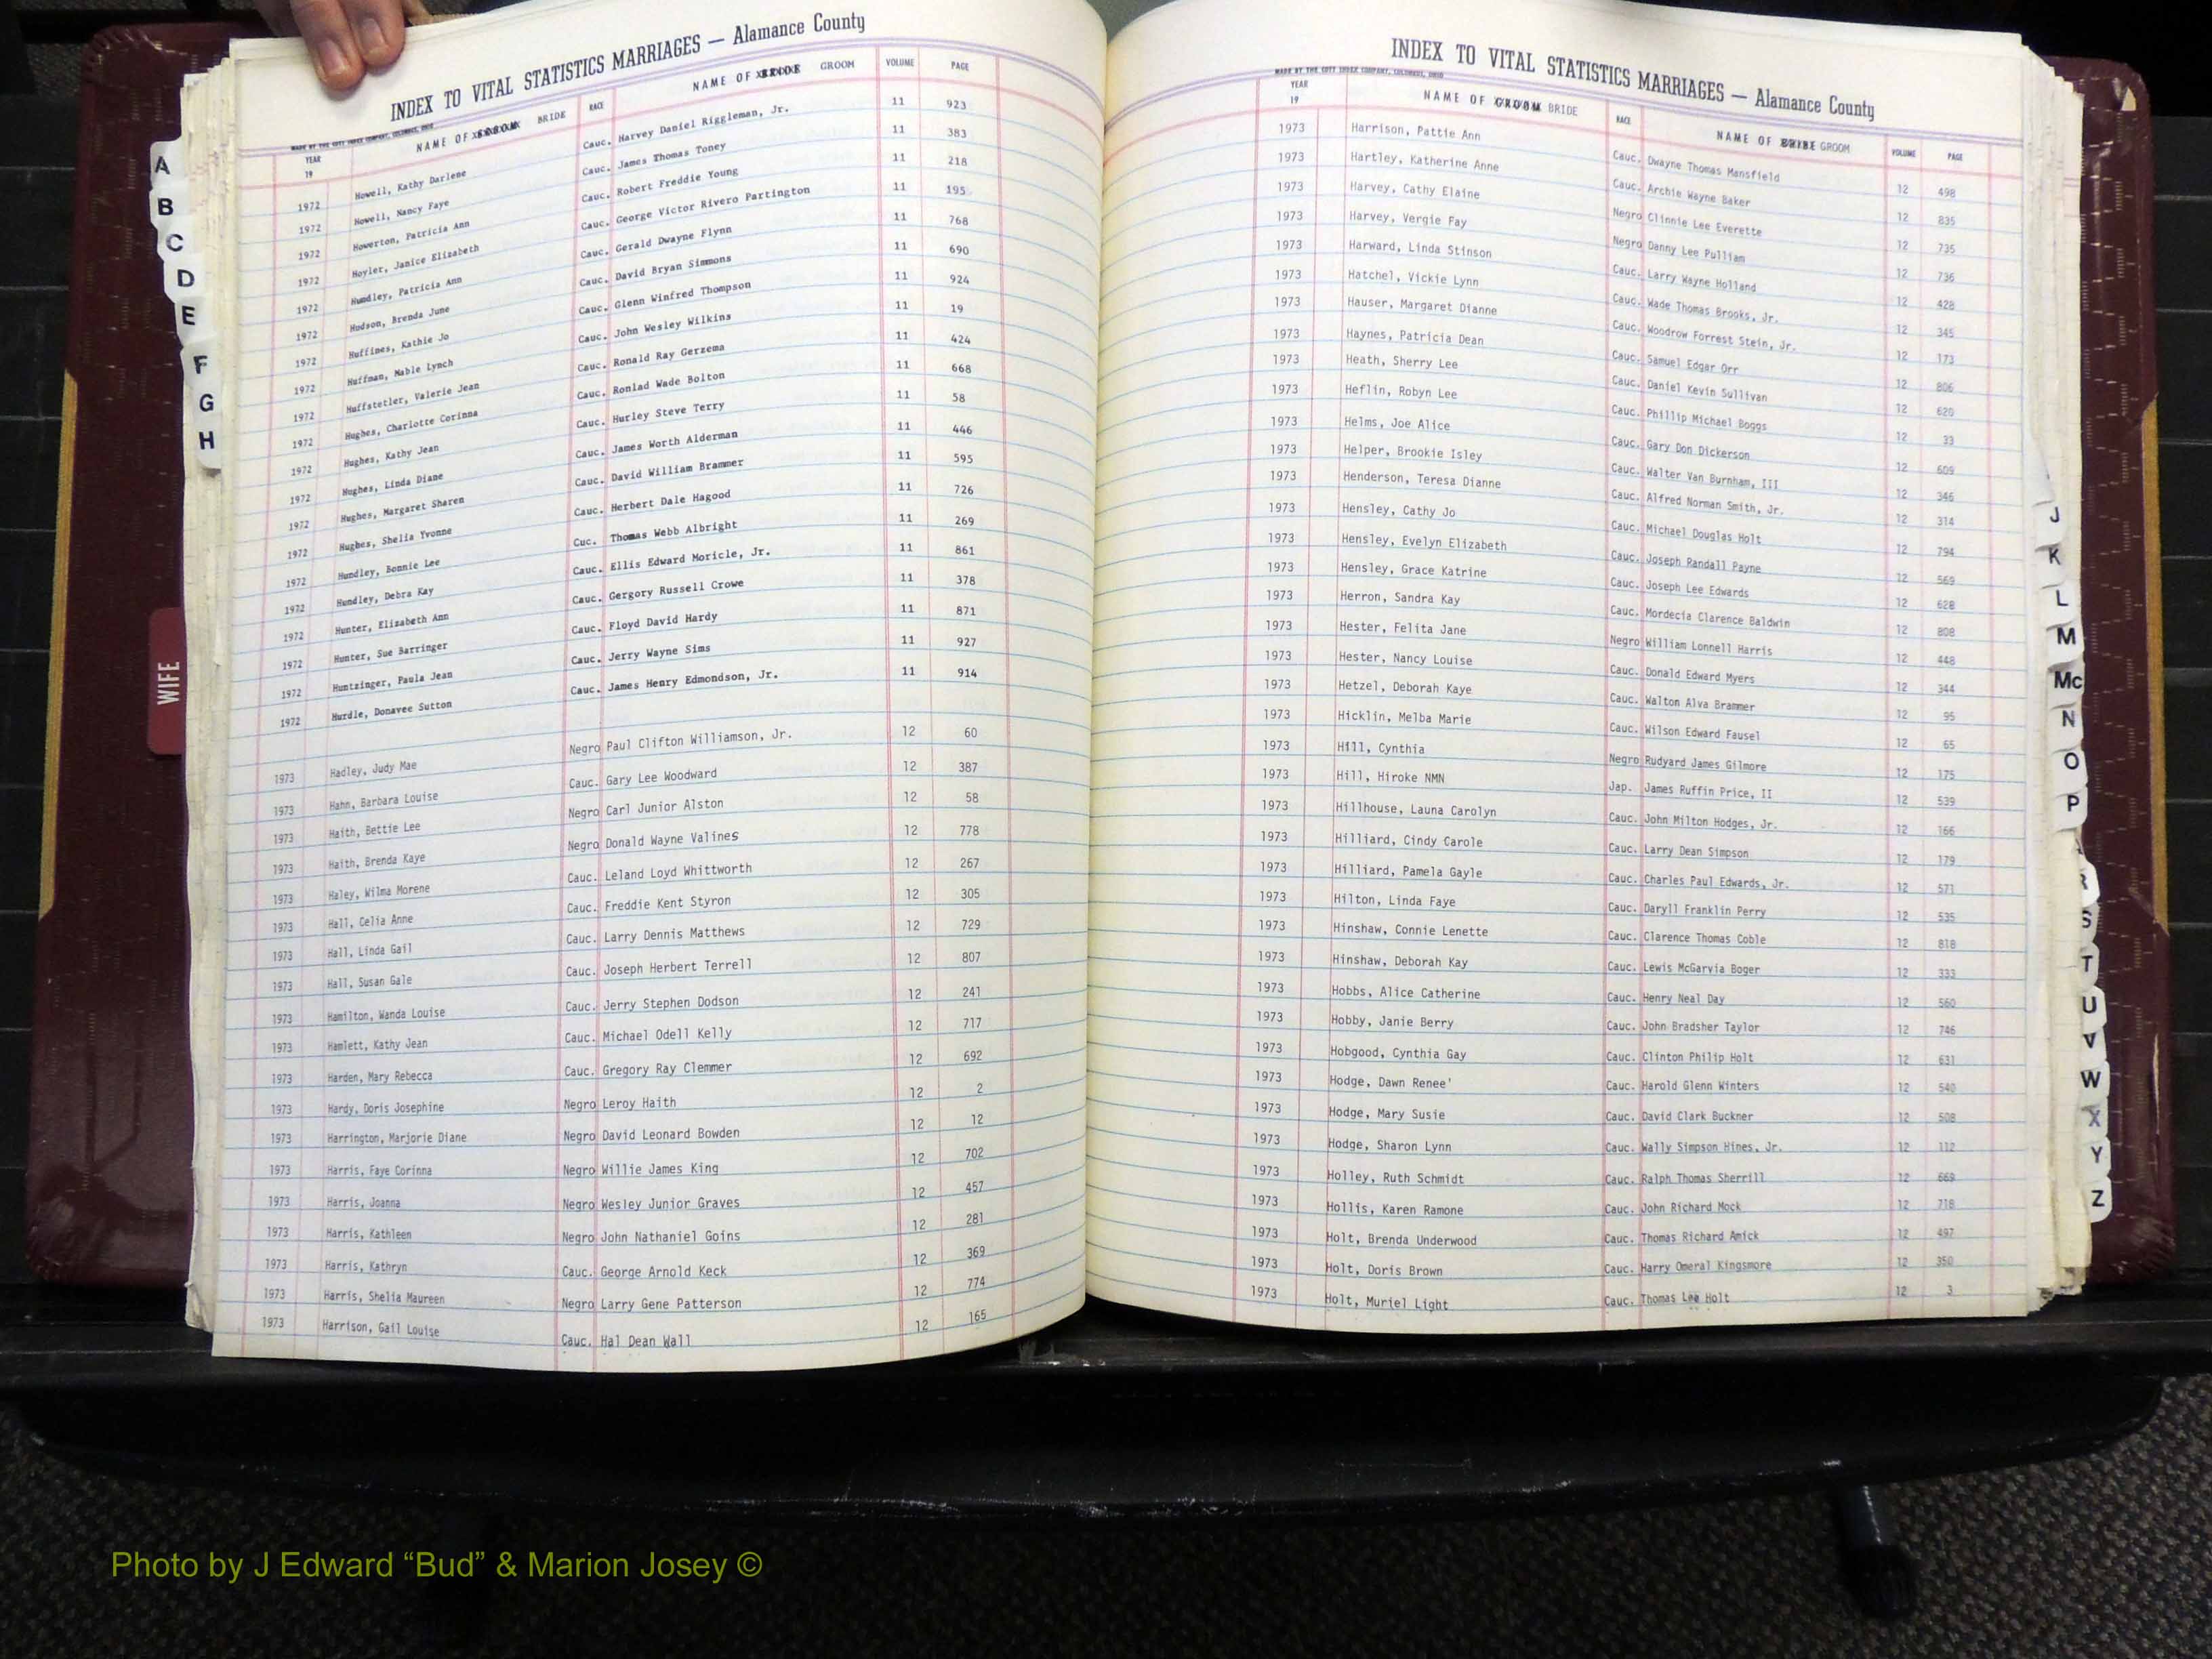 INDEX TO VITAL STATISTICS MARRIAGES — Alamance County
MADE BY THE COTT INDEX COMPANY, COLUMBUS, OHIO
YEAR 19 NAME OF GROOM BRIDE RACE NAME OF BRIDE GROOM VOLUME PAGE
1972 Howell, Kathy Darlene Cauc. Harvey Daniel Riggleman, Jr. 11 923
1972 Howell, Nancy Faye Cauc. James Thomas Toney 11 383
1972 Howerton, Patricia Ann Cauc. Robert Freddie Young 11 218
1972 Hoyler, Janice Elizabeth Cauc. George Victor Rivero Partington 11 195
1972 Humdley, Patricia Ann Cauc. Gerald Dwayne Flynn 11 768
1972 Hudson, Brenda June Cauc. David Bryan Simmons 11 690
1972 Huffines, Kathie Jo Cauc. Glenn Winfred Thompson 11 924
1972 Huffman, Mable Lynch Cauc. John Wesley Wilkins 11 19
1972 Huffstetler, Valerie Jean Cauc. Ronald Ray Gerzema 11 424
1972 Hughes, Charlotte Corinna Cauc. Ronlad Wade Bolton 11 668
1972 Hughes, Kathy Jean Cauc. Hurley Steve Terry 11 58
1972 Hughes, Linda Diane Cauc. James Worth Alderman 11 446
1972 Hughes, Margaret Sharen Cauc. David William Brammer 11 595
1972 Hughes, Shelia Yvonne Cauc. Herbert Dale Hagood 11 726
1972 Hundley, Bonnie Lee Cuc. Thomas Webb Albright 11 269
1972 Hundley, Debra Kay Cauc. Ellis Edward Moricle, Jr. 11 861
1972 Hunter, Elizabeth Ann Cauc. Gergory Russell Crowe 11 378
1972 Hunter, Sue Barringer Cauc. Floyd David Hardy 11 871
1972 Huntzinger, Paula Jean Cauc. Jerry Wayne Sims 11 927
1972 Hurdle, Donavee Sutton Cauc. James Henry Edmondson, Jr. 11 914
1973 Hadley, Judy Mae Negro Paul Clifton Williamson, Jr. 12 60
1973 Hahn, Barbara Louise Cauc. Gary Lee Woodward 12 387
1973 Haith, Bettie Lee Negro Carl Junior Alston 12 58
1973 Haith, Brenda Kaye Negro Donald Wayne Valines 12 778
1973 Haley, Wilma Morene Cauc. Leland Loyd Whittworth 12 267
1973 Hall, Celia Anne Cauc. Freddie Kent Styron 12 305
1973 Hall, Linda Gail Cauc. Larry Dennis Matthews 12 729
1973 Hall, Susan Gale Cauc. Joseph Herbert Terrell 12 807
1973 Hamilton, Wanda Louise Cauc. Jerry Stephen Dodson 12 241
1973 Hamlett, Kathy Jean Cauc. Michael Odell Kelly 12 717
1973 Harden, Mary Rebecca Cauc. Gregory Ray Clemmer 12 692
1973 Hardy, Doris Josephine Negro Leroy Haith 12 2
1973 Harrington, Marjorie Diane Negro David Leonard Bowden 12 12
1973 Harris, Faye Corinna Negro Willie James King 12 702
1973 Harris, Joanna Negro Wesley Junior Graves 12 457
1973 Harris, Kathleen Negro John Nathaniel Goins 12 281
1973 Harris, Kathryn Cauc. George Arnold Keck 12 369
1973 Harris, Shelia Maureen Negro Larry Gene Patterson 12 774
1973 Harrison, Gail Louise Cauc. Hal Dean Wall 12 165
A
B
C
D
E
F
G
H
WIFE
INDEX TO VITAL STATISTICS MARRIAGES — Alamance County
MADE BY THE COTT INDEX COMPANY, COLUMBUS, OHIO
YEAR 19 NAME OF GROOM BRIDE RACE NAME OF BRIDE GROOM VOLUME PAGE
1973 Harrison, Pattie Ann Cauc. Dwayne Thomas Mansfield 12 498
1973 Hartley, Katherine Anne Cauc. Archie Wayne Baker 12 835
1973 Harvey, Cathy Elaine Negro Clinnie Lee Everette 12 735
1973 Harvey, Vergie Fay Negro Danny Lee Pulliam 12 736
1973 Harward, Linda Stinson Cauc. Larry Wayne Holland 12 428
1973 Hatchel, Vickie Lynn Cauc. Wade Thomas Brooks, Jr. 12 345
1973 Hauser, Margaret Dianne Cauc. Woodrow Forrest Stein, Jr. 12 173
1973 Haynes, Patricia Dean Cauc. Samuel Edgar Orr 12 806
1973 Heath, Sherry Lee Cauc. Daniel Kevin Sullivan 12 620
1973 Heflin, Robyn Lee Cauc. Phillip Michael Boggs 12 33
1973 Helms, Joe Alice Cauc. Gary Don Dickerson 12 609
1973 Helper, Brookie Isley Cauc. Walter Van Burnham, III 12 346
1973 Henderson, Teresa Dianne Cauc. Alfred Norman Smith, Jr. 12 314
1973 Hensley, Cathy Jo Cauc. Michael Douglas Holt 12 794
1973 Hensley, Evelyn Elizabeth Cauc. Joseph Randall Payne 12 569
1973 Hensley, Grace Katrine Cauc. Joseph Lee Edwards 12 628
1973 Herron, Sandra Kay Cauc. Mordecia Clarence Baldwin 12 808
1973 Hester, Felita Jane Negro William Lonnell Harris 12 448
1973 Hester, Nancy Louise Cauc. Donald Edward Myers 12 344
1973 Hetzel, Deborah Kaye Cauc. Walton Alva Brammer 12 95
1973 Hicklin, Melba Marie Cauc. Wilson Edward Fausel 12 65
1973 Hill, Cynthia Negro Rudyard James Gilmore 12 175
1973 Hill, Hiroke NMN Jap. James Ruffin Price, II 12 539
1973 Hillhouse, Launa Carolyn Cauc. John Milton Hodges, Jr. 12 166
1973 Hilliard, Cindy Carole Cauc. Larry Dean Simpson 12 179
1973 Hilliard, Pamela Gayle Cauc. Charles Paul Edwards, Jr. 12 571
1973 Hilton, Linda Faye Cauc. Daryll Franklin Perry 12 535
1973 Hinshaw, Connie Lenette Cauc. Clarence Thomas Coble 12 818
1973 Hinshaw, Deborah Kay Cauc. Lewis McGarvia Boger 12 333
1973 Hobbs, Alice Catherine Cauc. Henry Neal Day 12 560
1973 Hobby, Janie Berry Cauc. John Bradsher Taylor 12 746
1973 Hobgood, Cynthia Gay Cauc. Clinton Philip Holt 12 631
1973 Hodge, Dawn Renee' Cauc. Harold Glenn Winters 12 540
1973 Hodge, Mary Susie Cauc. David Clark Buckner 12 508
1973 Hodge, Sharon Lynn Cauc. Wally Simpson Hines, Jr. 12 112
1973 Holley, Ruth Schmidt Cauc. Ralph Thomas Sherrill 12 669
1973 Hollis, Karen Ramone Cauc. John Richard Mock 12 718
1973 Holt, Brenda Underwood Cauc. Thomas Richard Amick 12 497
1973 Holt, Doris Brown Cauc. Harry Omeral Kingsmore 12 350
1973 Holt, Muriel Light Cauc. Thomas Lee Holt 12 3
J
K
L
M
Mc
N
O
P
R
S
T
U
V
W
X
Y
Z
Photo by J Edward “Bud” & Marion Josey ©